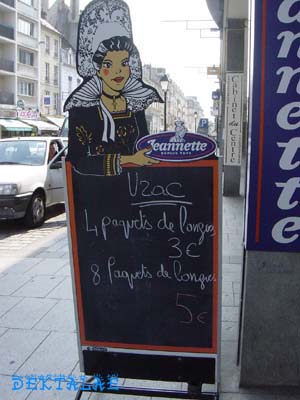 Jeannette
DEPUIS 1850
Vrac
4 paquets de longues
3€
8 Paquets de longues
5€
Cabinet du Centre
Jeannette
DEKTALAE